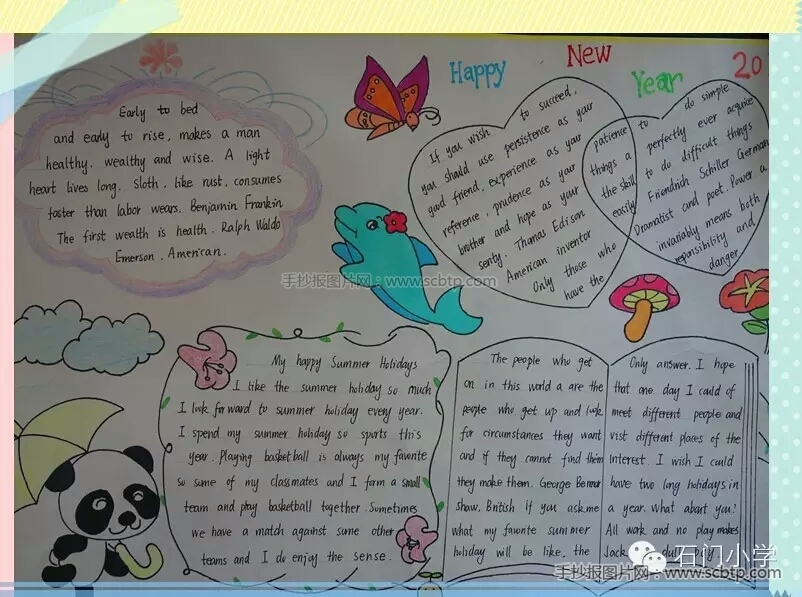 Happy New Year 20
Early to bed
and early to rise, makes a man
healthy. wealthy and wise. A light
heart lives long. Sloth. like rust. consumes
faster than labor wears. Benjamin Frankin
The first wealth is health. Ralph Waldo
Emerson. American.
If you wish to succeed,
you should use persistence as your
good friend, experience as your
reference, prudence as your
brother and hope as your
senty. Thomas Edison
American inventor
Only those who
have the
patience to do simple
things perfectly ever acquire
the skill to do difficult things
easily Friendrich Schiller German
Dramatist and poet. Power a
invariably means both
reponsibility and
danger
手抄报图片网:www.scbtp.com
My happy Summer Holidays
I like the summer holiday so much
I look forward to summer holiday every year.
I spend my summer holiday so sports this
year. Playing basketball is always my favorite
so some of my classmates and I form a small
team and play basketball together. Sometimes
we have a match against some other
teams and I do enjoy the sense.
The people who get
on in this world a are the
people who get up and look
for circumstances they want
and if they cannot find them
they make them. George Bernar
shaw. British if you ask me
what my favorite summer
holiday will be like. the
Only answer. I hope
that one day I could of
meet different people and
vist different places of the
interest. I wish I could
have two long holidays in
a year. What about you?
All work and no play makes
Jack
石门小学
手抄报图片网:www.scbtp.com